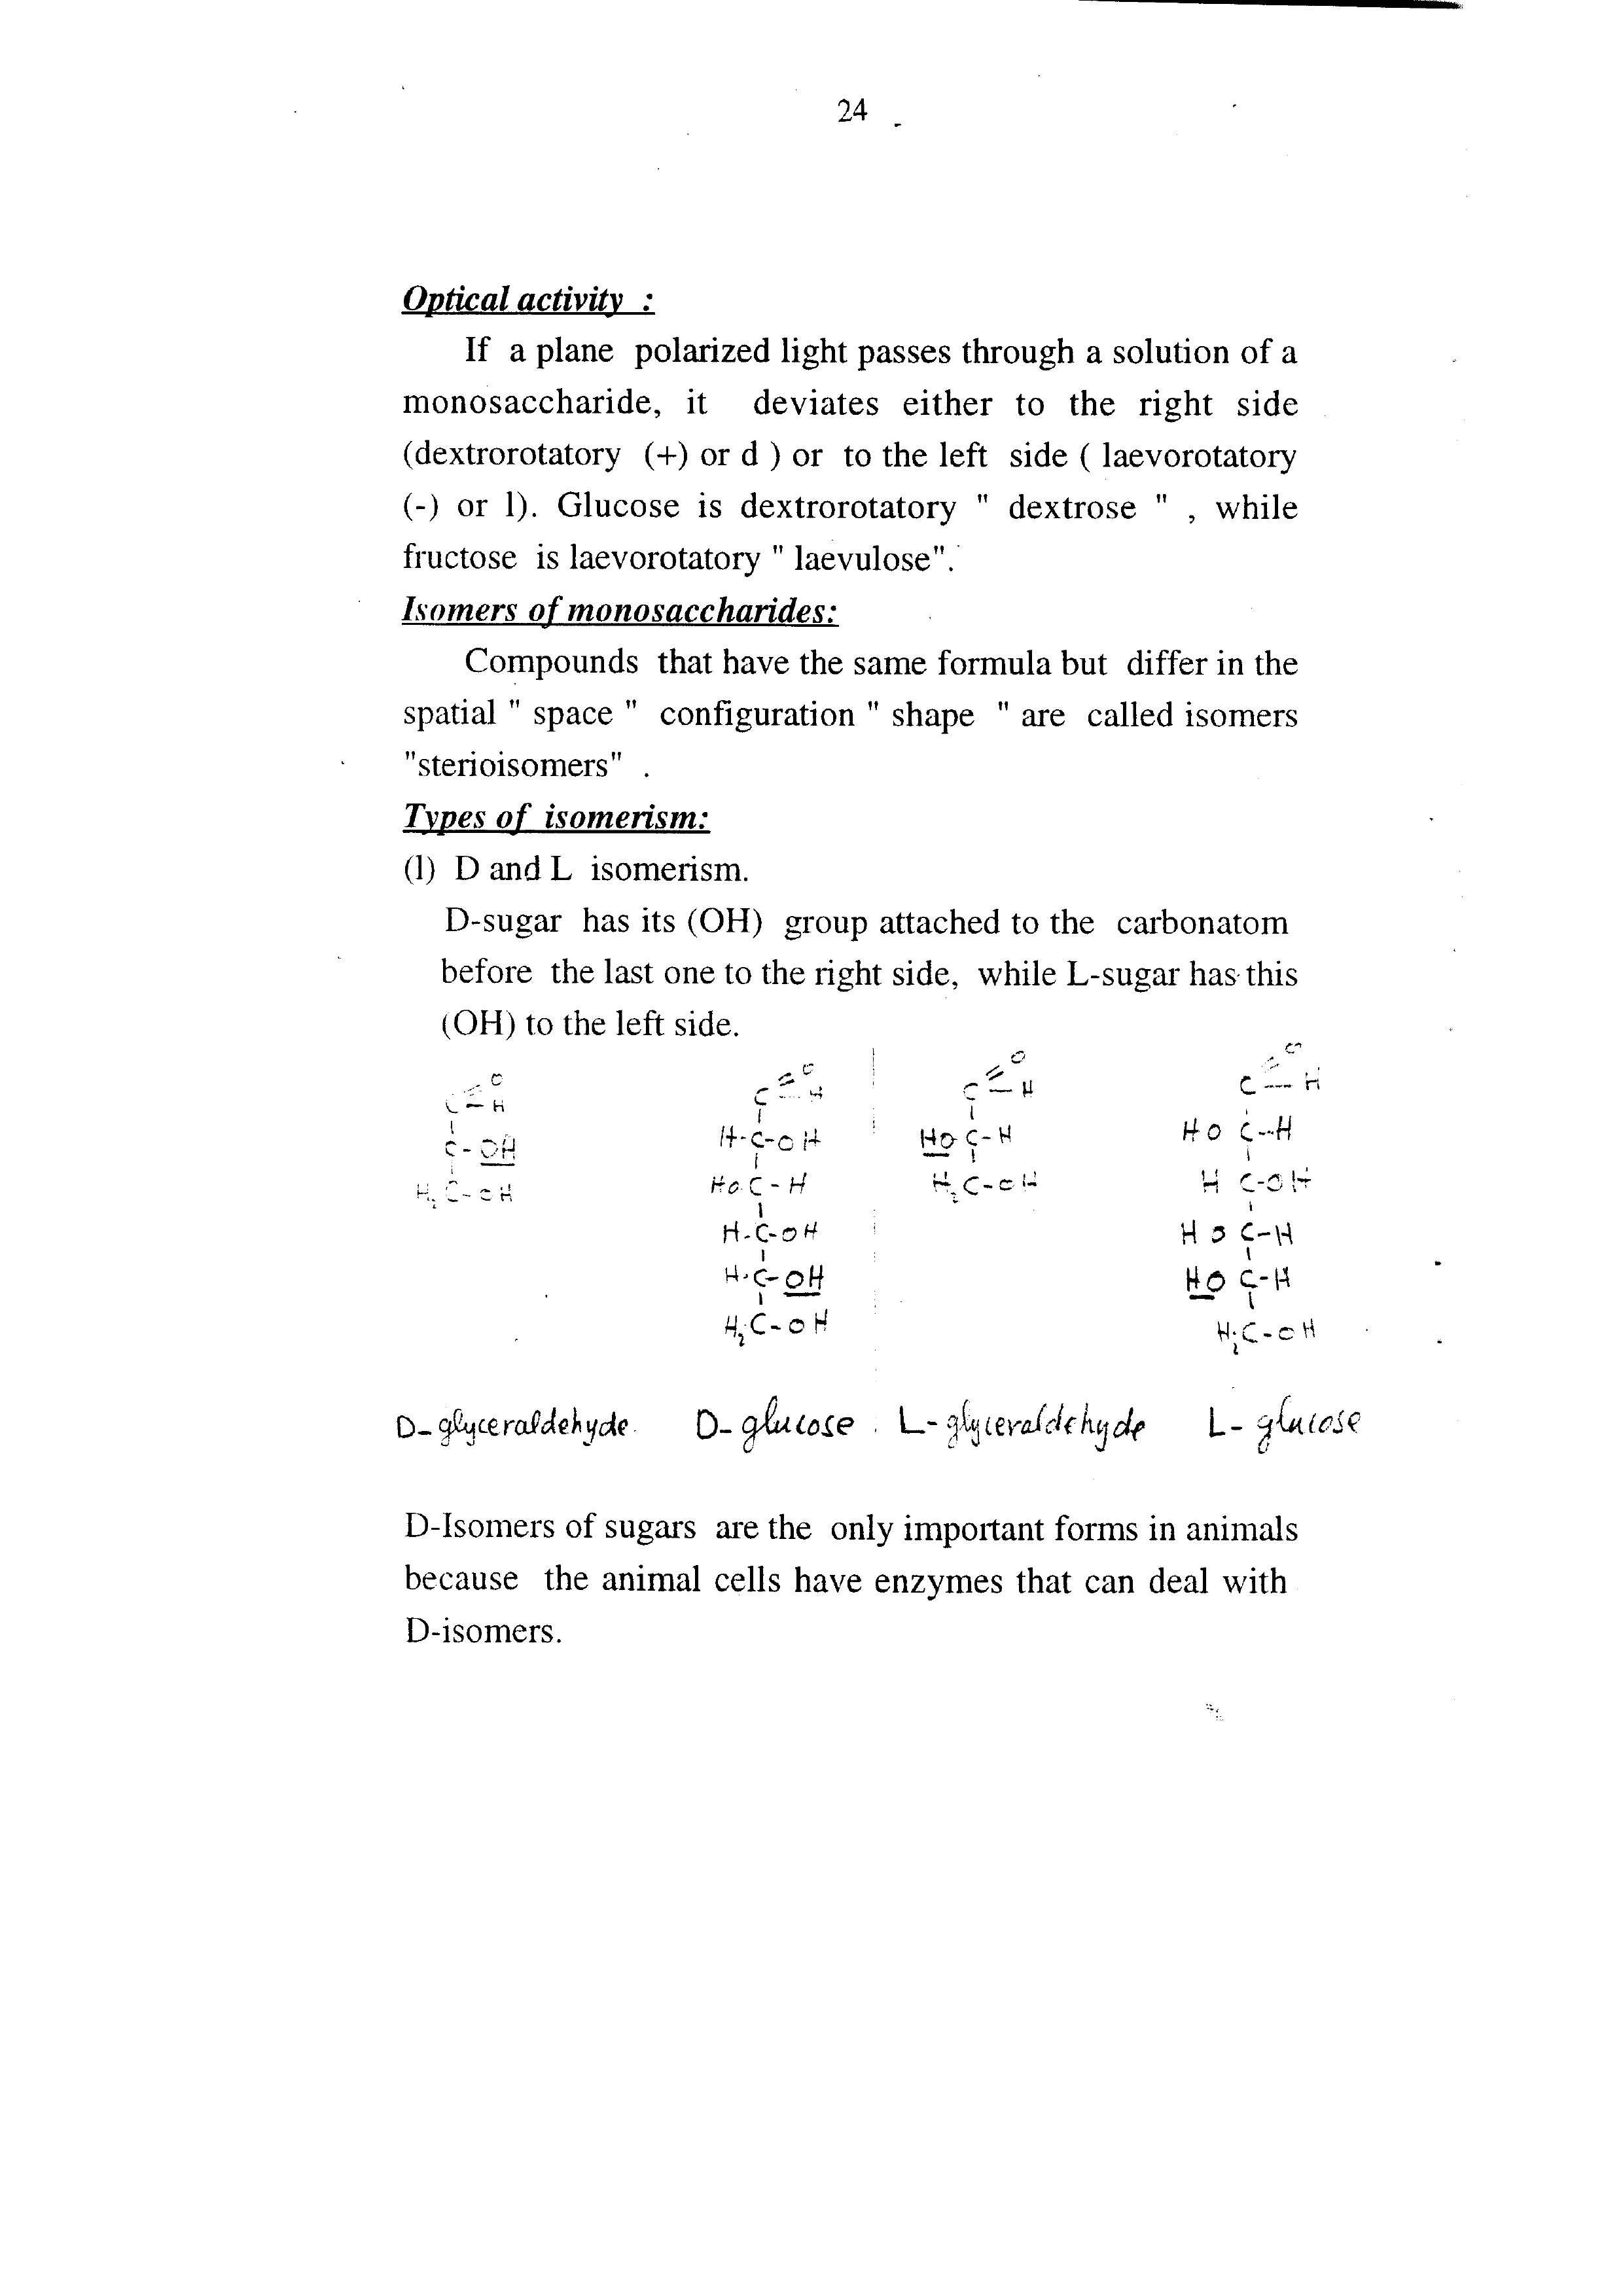 24
Optical activity :
If a plane polarized light passes through a solution of a
monosaccharide, it deviates either to the right side
(dextrorotatory (+) or d ) or to the left side ( laevorotatory
(-) or l). Glucose is dextrorotatory " dextrose " , while
fructose is laevorotatory " laevulose".
Isomers of monosaccharides:
Compounds that have the same formula but differ in the
spatial " space " configuration " shape " are called isomers
"sterioisomers" .
Types of isomerism:
(l) D and L isomerism.
D-sugar has its (OH) group attached to the carbonatom
before the last one to the right side, while L-sugar has this
(OH) to the left side.
O
C = H
C - OH
H2 C - OH
O
C = H
H-C-OH
HO C - H
H-C-OH
H-C-OH
H2C-OH
O
C = H
HO C-H
H2 C-OH
O
C = H
HO C-H
H C-OH
HO C-H
HO C-H
H2C-OH
D-glyceraldehyde. D-glucose. L-glyceraldehyde L-glucose
D-Isomers of sugars are the only important forms in animals
because the animal cells have enzymes that can deal with
D-isomers.